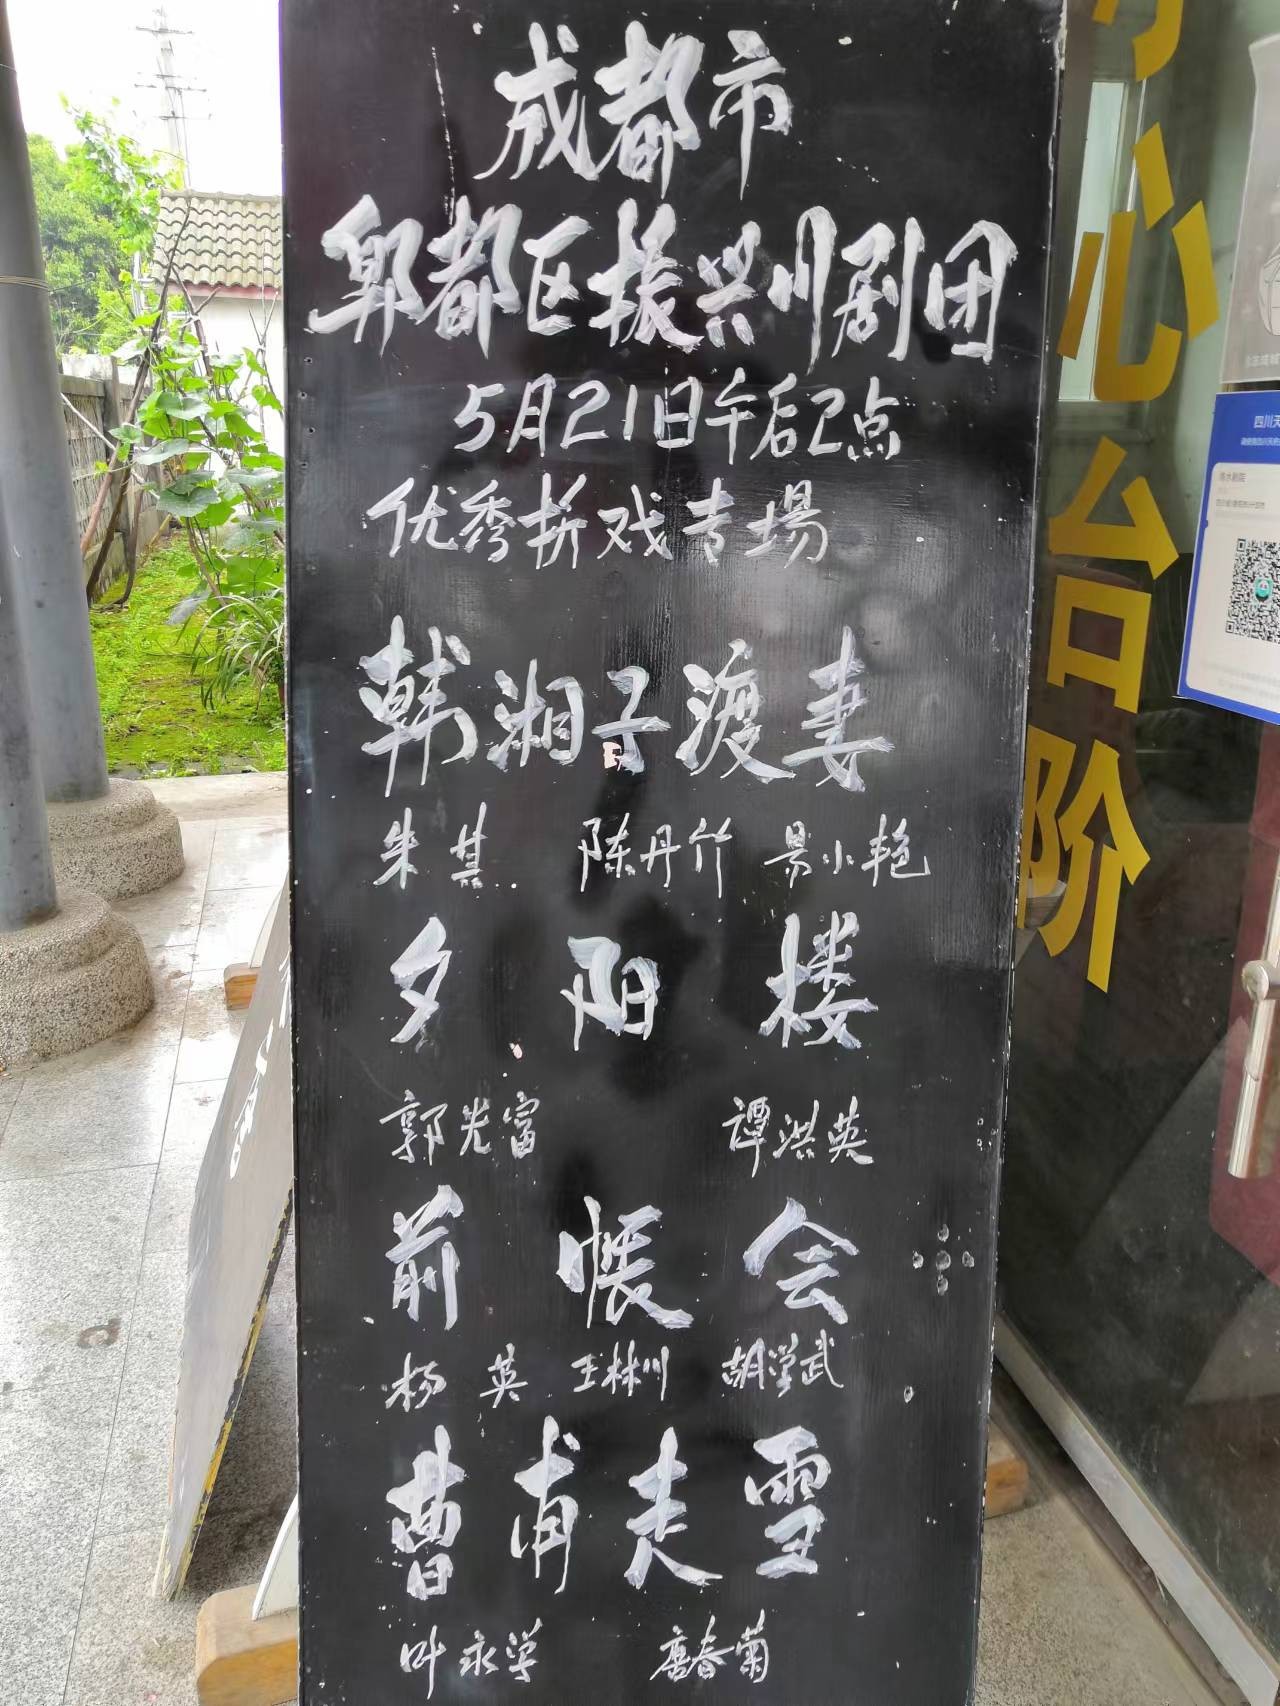 成都市
郫都区振兴川剧团
5月21日午后2点
优秀折戏专場
韩湘子渡妻
朱其 陈丹竹 景小艳
夕阳楼
郭光富 谭洪英
前帐会
杨英 王林川 胡学武
曹甫走雪
叶永学 唐春菊
心台阶
四川天